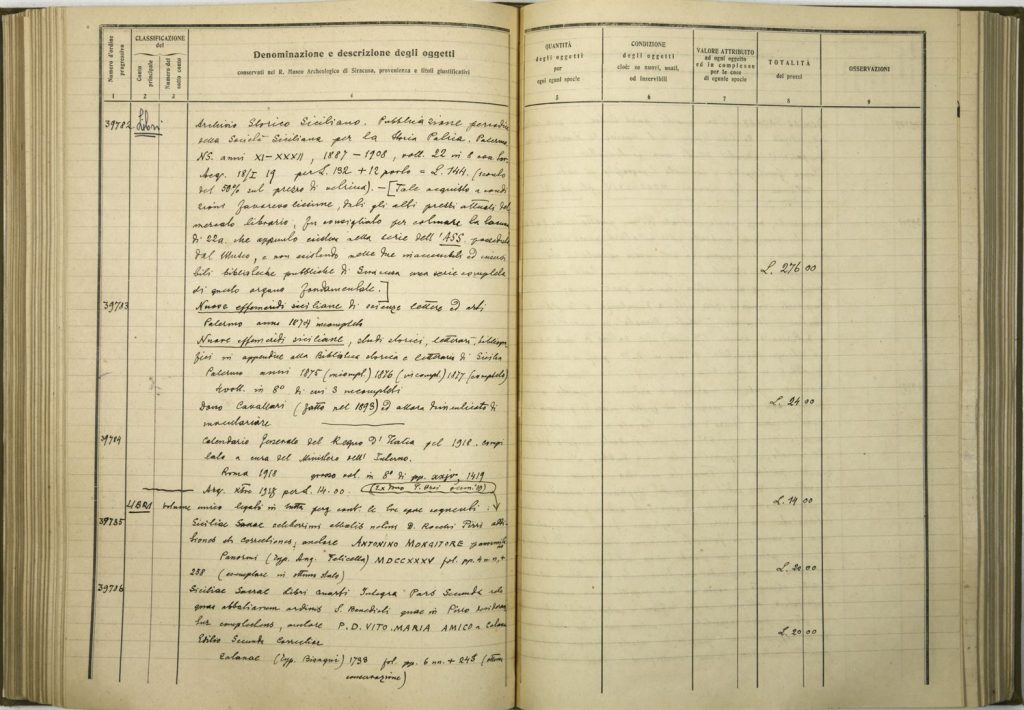 Numero d'ordine progressivo
CLASSIFICAZIONE del
Conto principale
Numero del sotto conto
Denominazione e descrizione degli oggetti
conservati nel R. Museo Archeologico di Siracusa, provenienza e titoli giustificativi
QUANTITÀ degli oggetti per ogni specie
CONDIZIONE degli oggetti cioè: se nuovi, usati, od inservibili
VALORE ATTRIBUITO ad ogni oggetto ed in complesso per le cose di eguale specie
TOTALITÀ dei prezzi
OSSERVAZIONI
1 2 3 4 5 6 7 8 9
39782 Libri Archivio Storico Siciliano. Pubblicazione periodica
della Società Siciliana per la Storia Patria. Palermo
NS. anni XI-XXXII, 1887-1908, voll. 22 in 8
Acq. 18/I 19 per L. 132 + 12 porto = L. 144. (sconto
del 50% sul prezzo di vetrina). - [Tale acquisto a condi
zioni favorevolissime, dati gli alti prezzi attuali del
mercato librario, fu consigliato per colmare la lacuna
di 22 a. che appunto esisteva nella serie dell'ASS. posseduta
dal Museo, e non esistendo nelle due
biblioteche pubbliche di Siracusa una serie completa
di questo organo fondamentale.]
L. 276 00
39783 Nuove effemeridi siciliane di scienze lettere ed arti
Palermo anno 1874 incompleto
Nuove effemeridi siciliane, studi storici, letterari, bibliogra
fici in appendice alla Biblioteca storica e letteraria di Sicilia
Palermo anni 1875 (incompl.) 1876 (incompl.) 1877 (completo)
4 voll. in 8° di cui 3 incompleti
Dono Cavallari (fatto nel 1893) ed allora dimenticato di
inventariare
L. 24 00
39784 Calendario Generale del Regno D'Italia pel 1918. compi
lato a cura del Ministero dell'Interno.
Roma 1918 grosso vol. in 8° di pp. 1419
Acq. per L. 14.00.
L. 14 00
LIBRI Volume unico legato in tutta perg. cont. le tre opere seguenti:
39785 Siciliae Sacrae celeberrimi abbatis netini D. Rocchi Pirri addi
tiones et correctiones, auctore ANTONINO MONGITORE panormit.
Panormi (typ. Ang. Felicella) MDCCXXXV fol. pp. 4 n.n. +
238 (esemplare in ottimo stato)
L. 20 00
39786 Siciliae Sacrae Libri Quarti Integra Pars Secunda reli
quas abbatiarum ordinis S. Benedicti quae in Pirro desideran
tur complectens, auctore P. D. VITO. MARIA AMICO a Catana
Editio Secunda Correctior
Catanae (typ. Bisagni) 1733 fol. pp. 6 nn. + 248 (ottima
conservazione)
L. 20 00